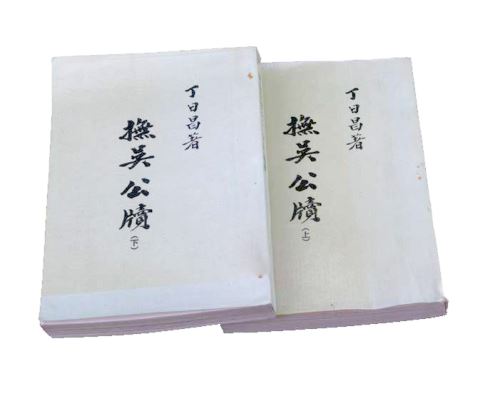 丁日昌著
撫吳公牘
(下)
丁日昌著
撫吳公牘
(上)